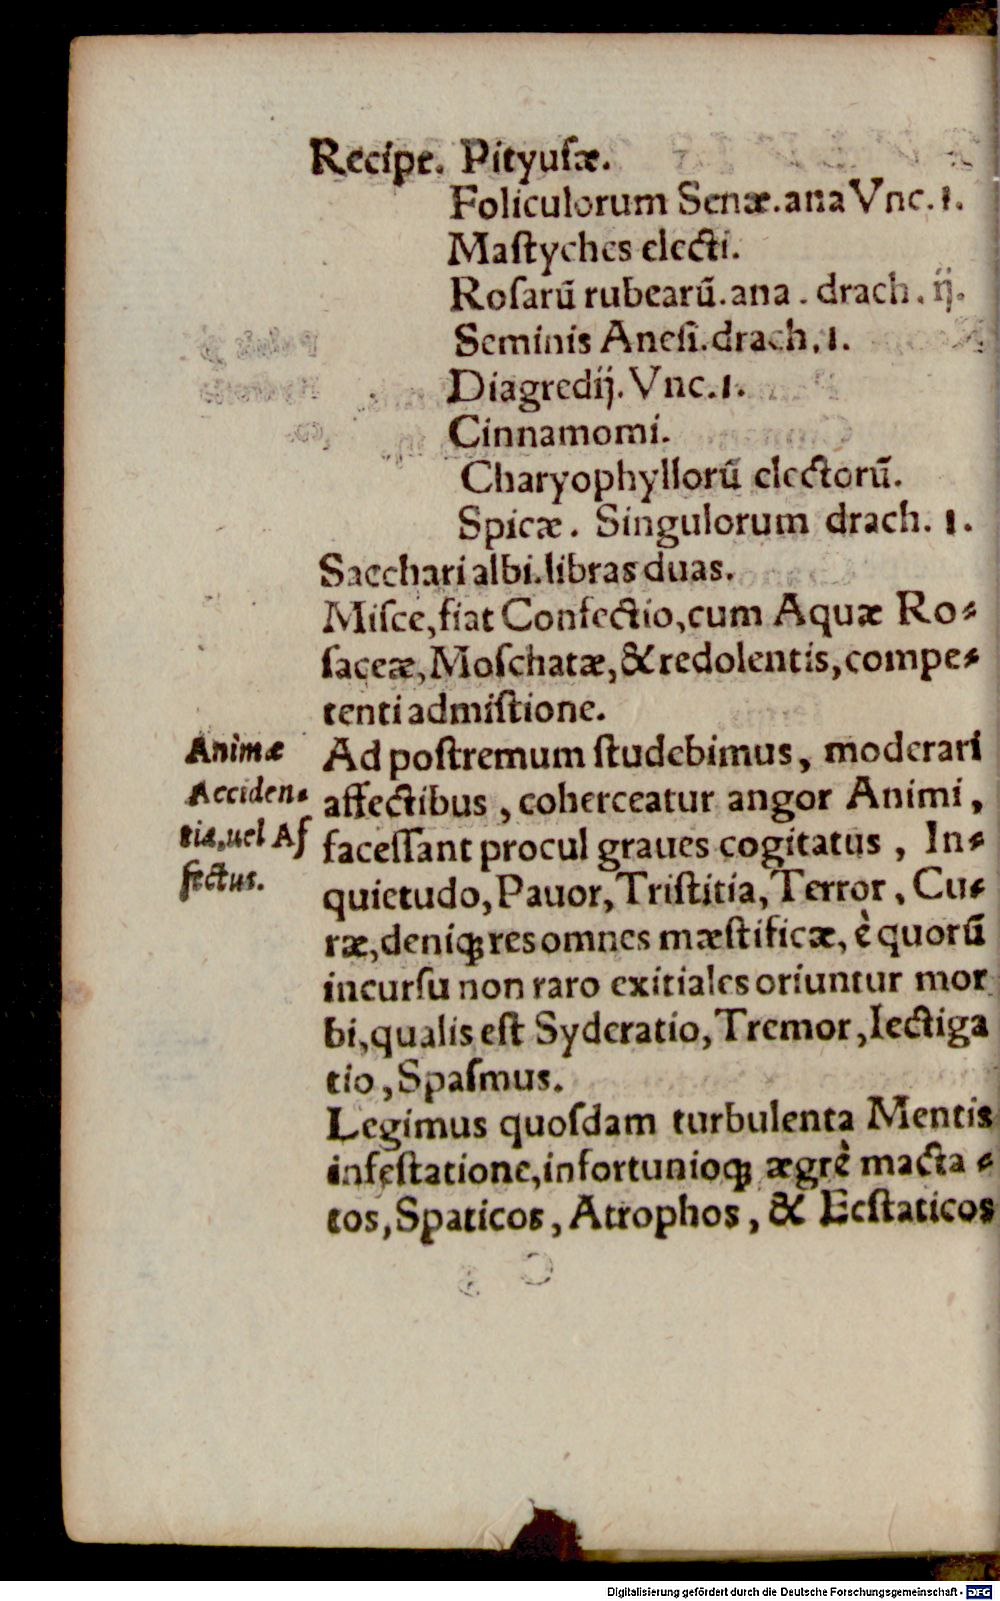 Recipe. Pityuſæ.
Foliculorum Senæ. ana Vnc. 1.
Maſtyches electi.
Roſarũ rubearũ. ana. drach. ij.
Seminis Aneſi. drach. 1.
Diagredij. Vnc. 1.
Cinnamomi.
Charyophyllorũ electorũ.
Spicæ. Singulorum drach. 1.
Sacchari albi. libras duas.
Miſce, fiat Confectio, cum Aquæ Ro⸗
ſaceæ, Moſchatæ, & redolentis, compe⸗
tenti admiſtione.
Animæ
Acciden⸗
tia, uel Af
fectus.
Ad poſtremum ſtudebimus, moderari
affectibus, coherceatur angor Animi,
faceſſant procul graues cogitatus, In⸗
quietudo, Pauor, Triſtitia, Terror, Cu⸗
ræ, deniq; res omnes mæſtificæ, è quorũ
incurſu non raro exitiales oriuntur mor
bi, qualis eſt Syderatio, Tremor, Iectiga
tio, Spaſmus.
Legimus quoſdam turbulenta Mentis
infeſtatione, infortunioq; ægrè macta⸗
tos, Spaticos, Atrophos, & Ecſtaticos
Digitalisierung gefördert durch die Deutsche Forschungsgemeinschaft - DFG